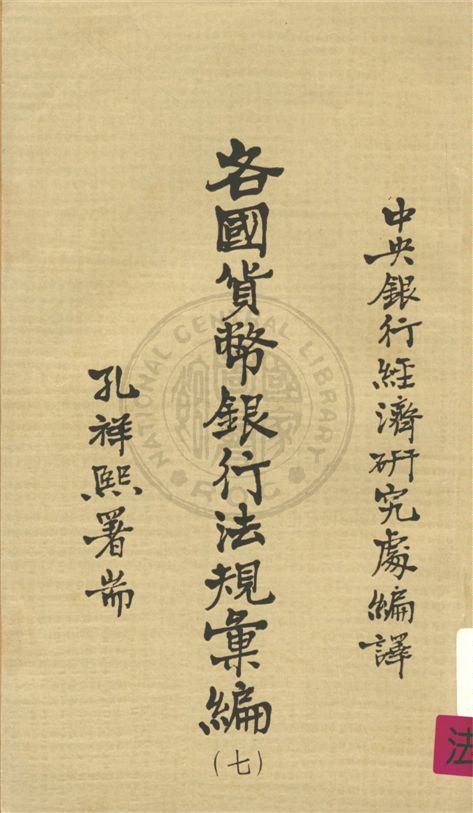 中央銀行經濟研究處編譯
各國貨幣銀行法規彙編
(七)
孔祥熙署耑
NATIONAL CENTRAL LIBRARY
R.O.C.
法